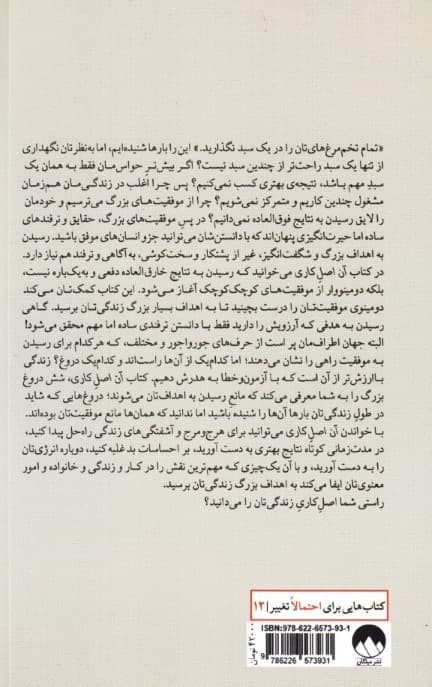 «تمام تخم‌مرغ‌های‌تان را در یک سبد نگذارید.» این را بارها شنیده‌ایم، اما به‌نظرتان نگهداری
از تنها یک سبد راحت‌تر از چندین سبد نیست؟ اگر بیش‌ترِ حواس‌مان فقط به همان یک
سبدِ مهم باشد، نتیجه‌ی بهتری کسب نمی‌کنیم؟ پس چرا اغلب در زندگی‌مان هم‌زمان
مشغول چندین کاریم و متمرکز نمی‌شویم؟ چرا از موفقیت‌های بزرگ می‌ترسیم و خودمان
را لایق رسیدن به نتایج فوق‌العاده نمی‌دانیم؟ در پسِ موفقیت‌های بزرگ، حقایق و ترفندهای
ساده اما حیرت‌انگیزی پنهان‌اند که با دانستن‌شان می‌توانید جزو انسان‌های موفق باشید. رسیدن
به اهداف بزرگ و شگفت‌انگیز، غیر از پشتکار و سخت‌کوشی، به آگاهی و ترفند هم نیاز دارد.
در کتاب آن اصلِ کاری می‌خوانید که رسیدن به نتایج خارق‌العاده دفعی و به‌یک‌باره نیست،
بلکه دومینووار از موفقیت‌های کوچک‌کوچک آغاز می‌شود. این کتاب کمک‌تان می‌کند
دومینوی موفقیت‌تان را درست بچینید تا به اهداف بسیار بزرگ زندگی‌تان برسید. گاهی
رسیدن به هدفی که آرزویش را دارید فقط با دانستن ترفندی ساده اما مهم محقق می‌شود!
البته جهان اطراف‌مان پر است از حرف‌های جورواجور و مختلف، که هرکدام برای رسیدن
به موفقیت راهی را نشان می‌دهند؛ اما کدام‌یک از آن‌ها راست‌اند و کدام‌یک دروغ؟ زندگی
باارزش‌تر از آن است که با آزمون‌وخطا به هدرش دهیم. کتاب آن اصلِ کاری، شش دروغ
بزرگ را به شما معرفی می‌کند که مانع رسیدن به اهداف‌تان می‌شوند؛ دروغ‌هایی که شاید
در طول زندگی‌تان بارها آن‌ها را شنیده باشید اما ندانید که همان‌ها مانع موفقیت‌تان بوده‌اند.
با خواندن آن اصلِ کاری می‌توانید برای هرج‌ومرج و آشفتگی‌های زندگی راه‌حل پیدا کنید،
در مدت‌زمانی کوتاه نتایج بهتری به دست آورید، بر احساسات بد غلبه کنید، دوباره انرژی‌تان
را به دست آورید، و با آن یک‌چیزی که مهم‌ترین نقش را در کار و زندگی و خانواده و امور
معنوی‌تان ایفا می‌کند به اهداف بزرگ زندگی‌تان برسید.
راستی شما اصلِ کاریِ زندگی‌تان را می‌دانید؟
کتاب‌هایی برای احتمالاً تغییر | ۱۳
ISBN: 978-622-6573-93-1
9 786226 573931
۴۲۰۰۰ تومان
نشر میلکان